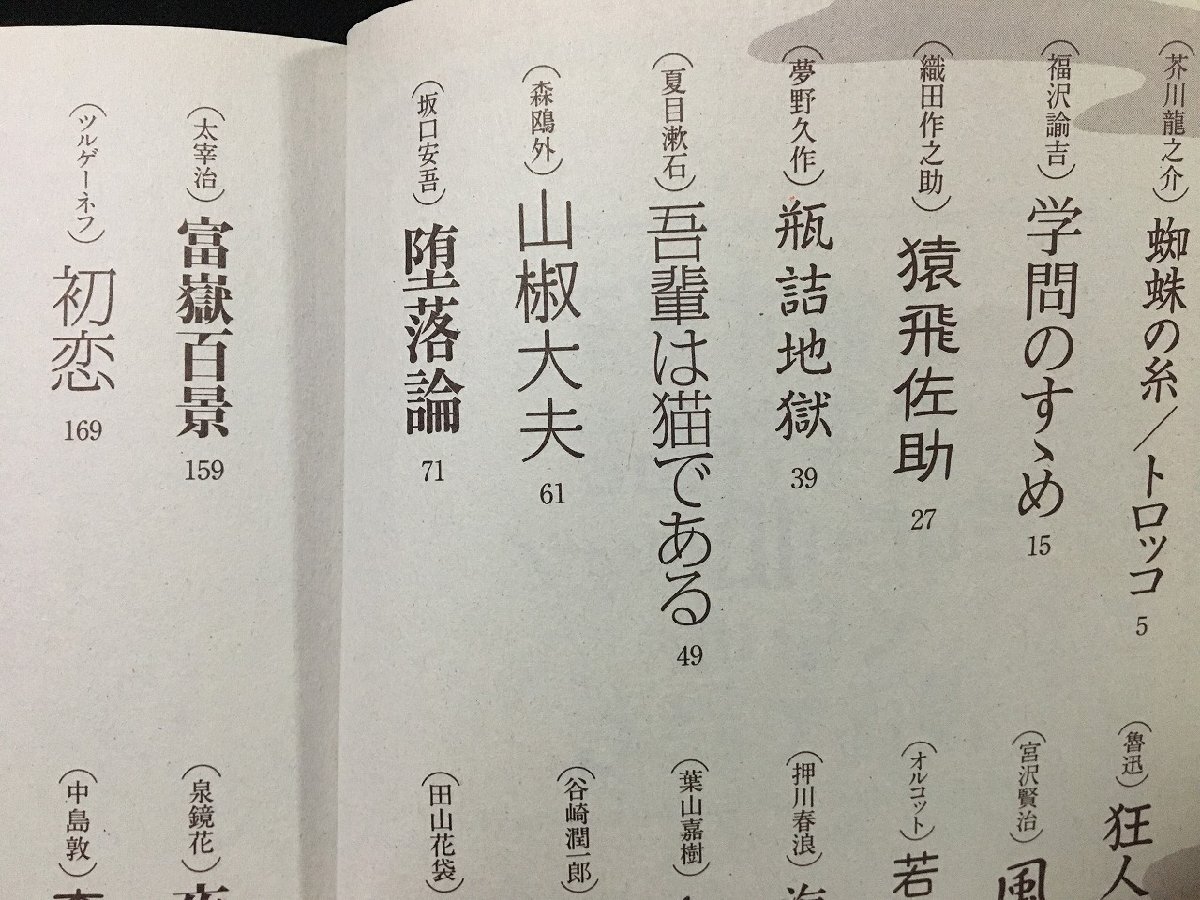 （芥川龍之介）蜘蛛の糸／トロッコ 5
（福沢諭吉）学問のすゝめ 15
（織田作之助）猿飛佐助 27
（夢野久作）瓶詰地獄 39
（夏目漱石）吾輩は猫である 49
（森鴎外）山椒大夫 61
（坂口安吾）堕落論 71
（魯迅）狂人
（宮沢賢治）風
（オルコット）若
（押川春浪）海
（葉山嘉樹）
（谷崎潤一郎）
（田山花袋）
（太宰治）富嶽百景 159
（ツルゲーネフ）初恋 169
（泉鏡花）夜
（中島敦）